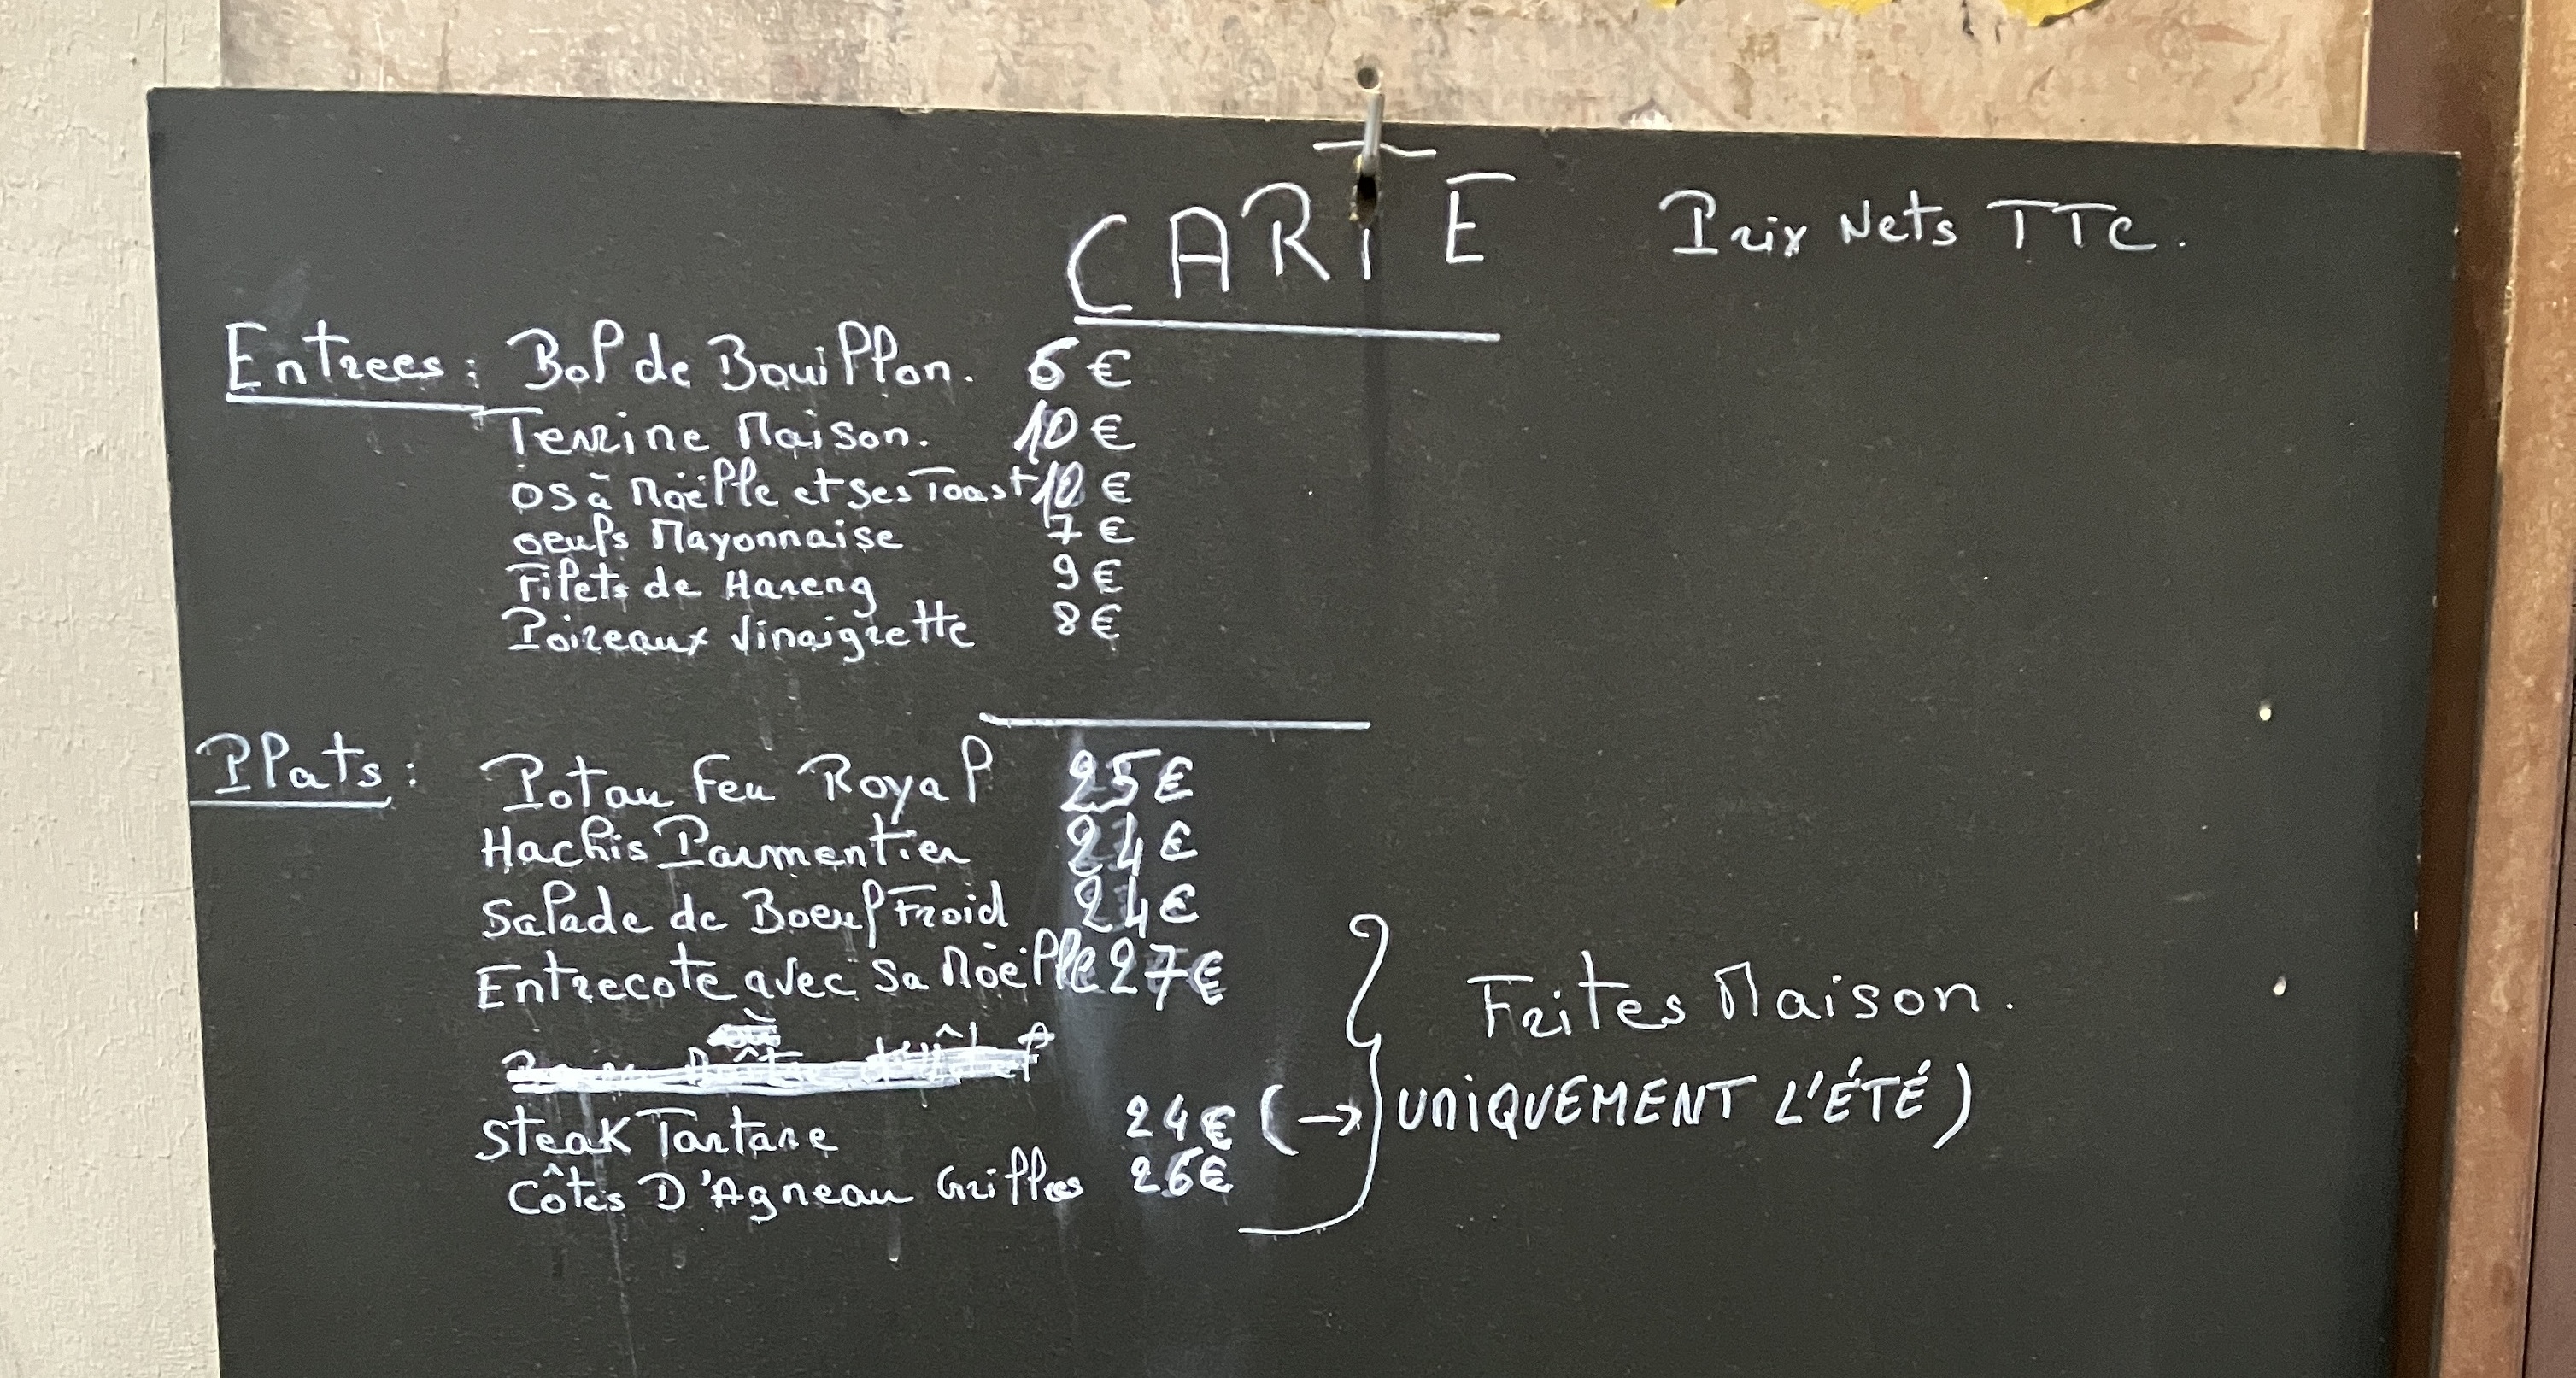 CARTE
Prix Nets TTC.
Entrees : Bol de Bouillon. 6 €
Terrine Maison. 10 €
os à Moëlle et ses Toast 10 €
oeufs Mayonnaise 7 €
Filets de Hareng 9 €
Poireaux Vinaigrette 8 €
Plats : Pot au Feu Royal 25 €
Hachis Parmentier 24 €
Salade de Boeuf Froid 24 €
Entrecote avec sa Moëlle 27 €
Frites Maison.
Steak Tartare 24 € (→ UNIQUEMENT L'ÉTÉ)
Côtes D'Agneau Grillees 26 €